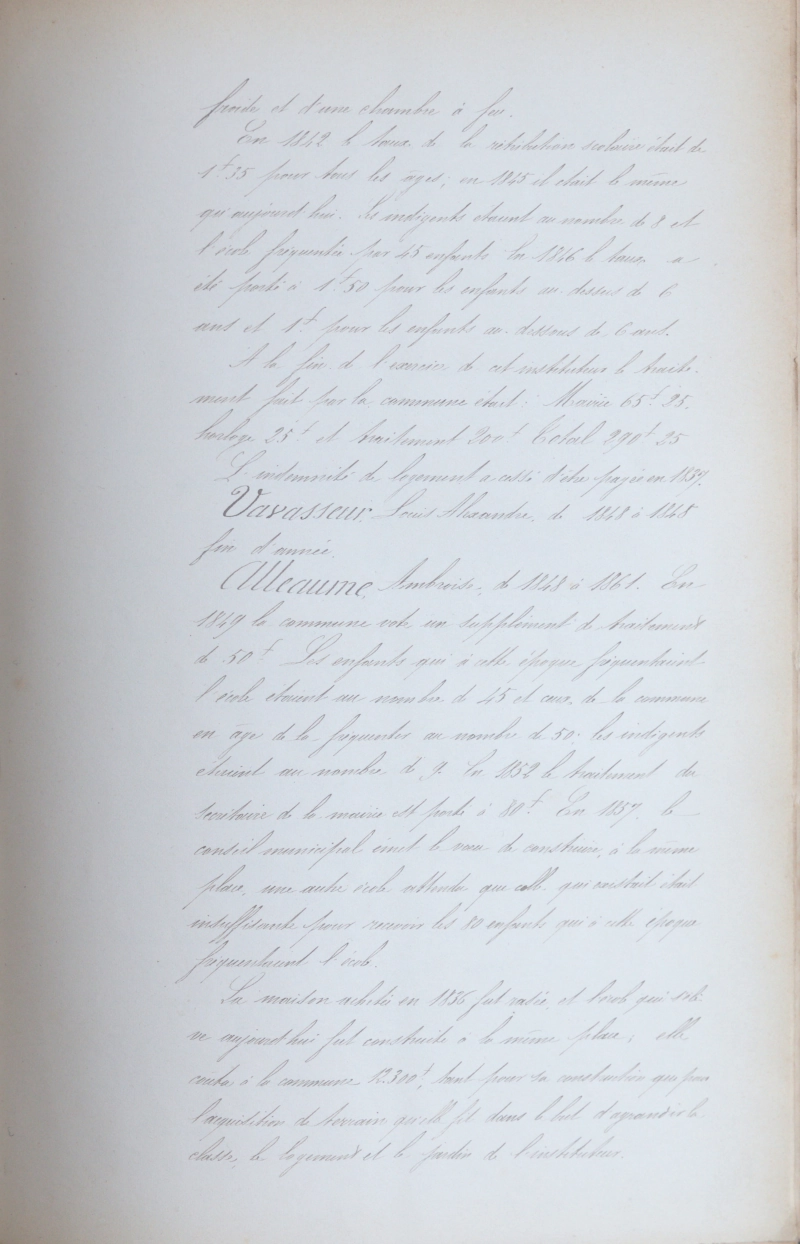 froide et d'une chambre à feu.
En 1842 le taux de la rétribution scolaire était de
1f 35 pour tous les âges; en 1845 il était le même
qu'aujourd'hui. Les indigents étaient au nombre de 8 et
l'école fréquentée par 45 enfants. En 1846 le taux a
été porté à 1f 50 pour les enfants au-dessus de 6
ans et 1f pour les enfants au-dessous de 6 ans.
A la fin de l'exercice de cet instituteur le traite-
ment fait par la commune était: Mairie 65f 25,
horloge 25f et traitement 200f Total 290f 25
L'indemnité de logement a cessé d'être payée en 1837.
Vavasseur, Louis Alexandre, de 1848 à 1848
fin d'année.
Alleaume, Ambroise, de 1848 à 1861. En
1849 la commune vote un supplément de traitement
de 50f Les enfants qui à cette époque fréquentaient
l'école étaient au nombre de 45 et ceux de la commune
en âge de la fréquenter au nombre de 50; les indigents
étaient au nombre de 9. En 1852 le traitement du
secrétaire de la mairie est porté à 80f. En 1857, le
conseil municipal émet le vœu de construire, à la même
place, une autre école attendu que celle qui existait était
insuffisante pour recevoir les 80 enfants qui à cette époque
fréquentaient l'école.
La maison achetée en 1836 fut rasée et l'école qui
aujourd'hui fut construite à la même place; elle
coûta à la commune 12.300f, tant pour sa construction que pour
l'acquisition de terrain qu'elle fit dans le but d'agrandir la
classe, le logement et le jardin de l'instituteur.